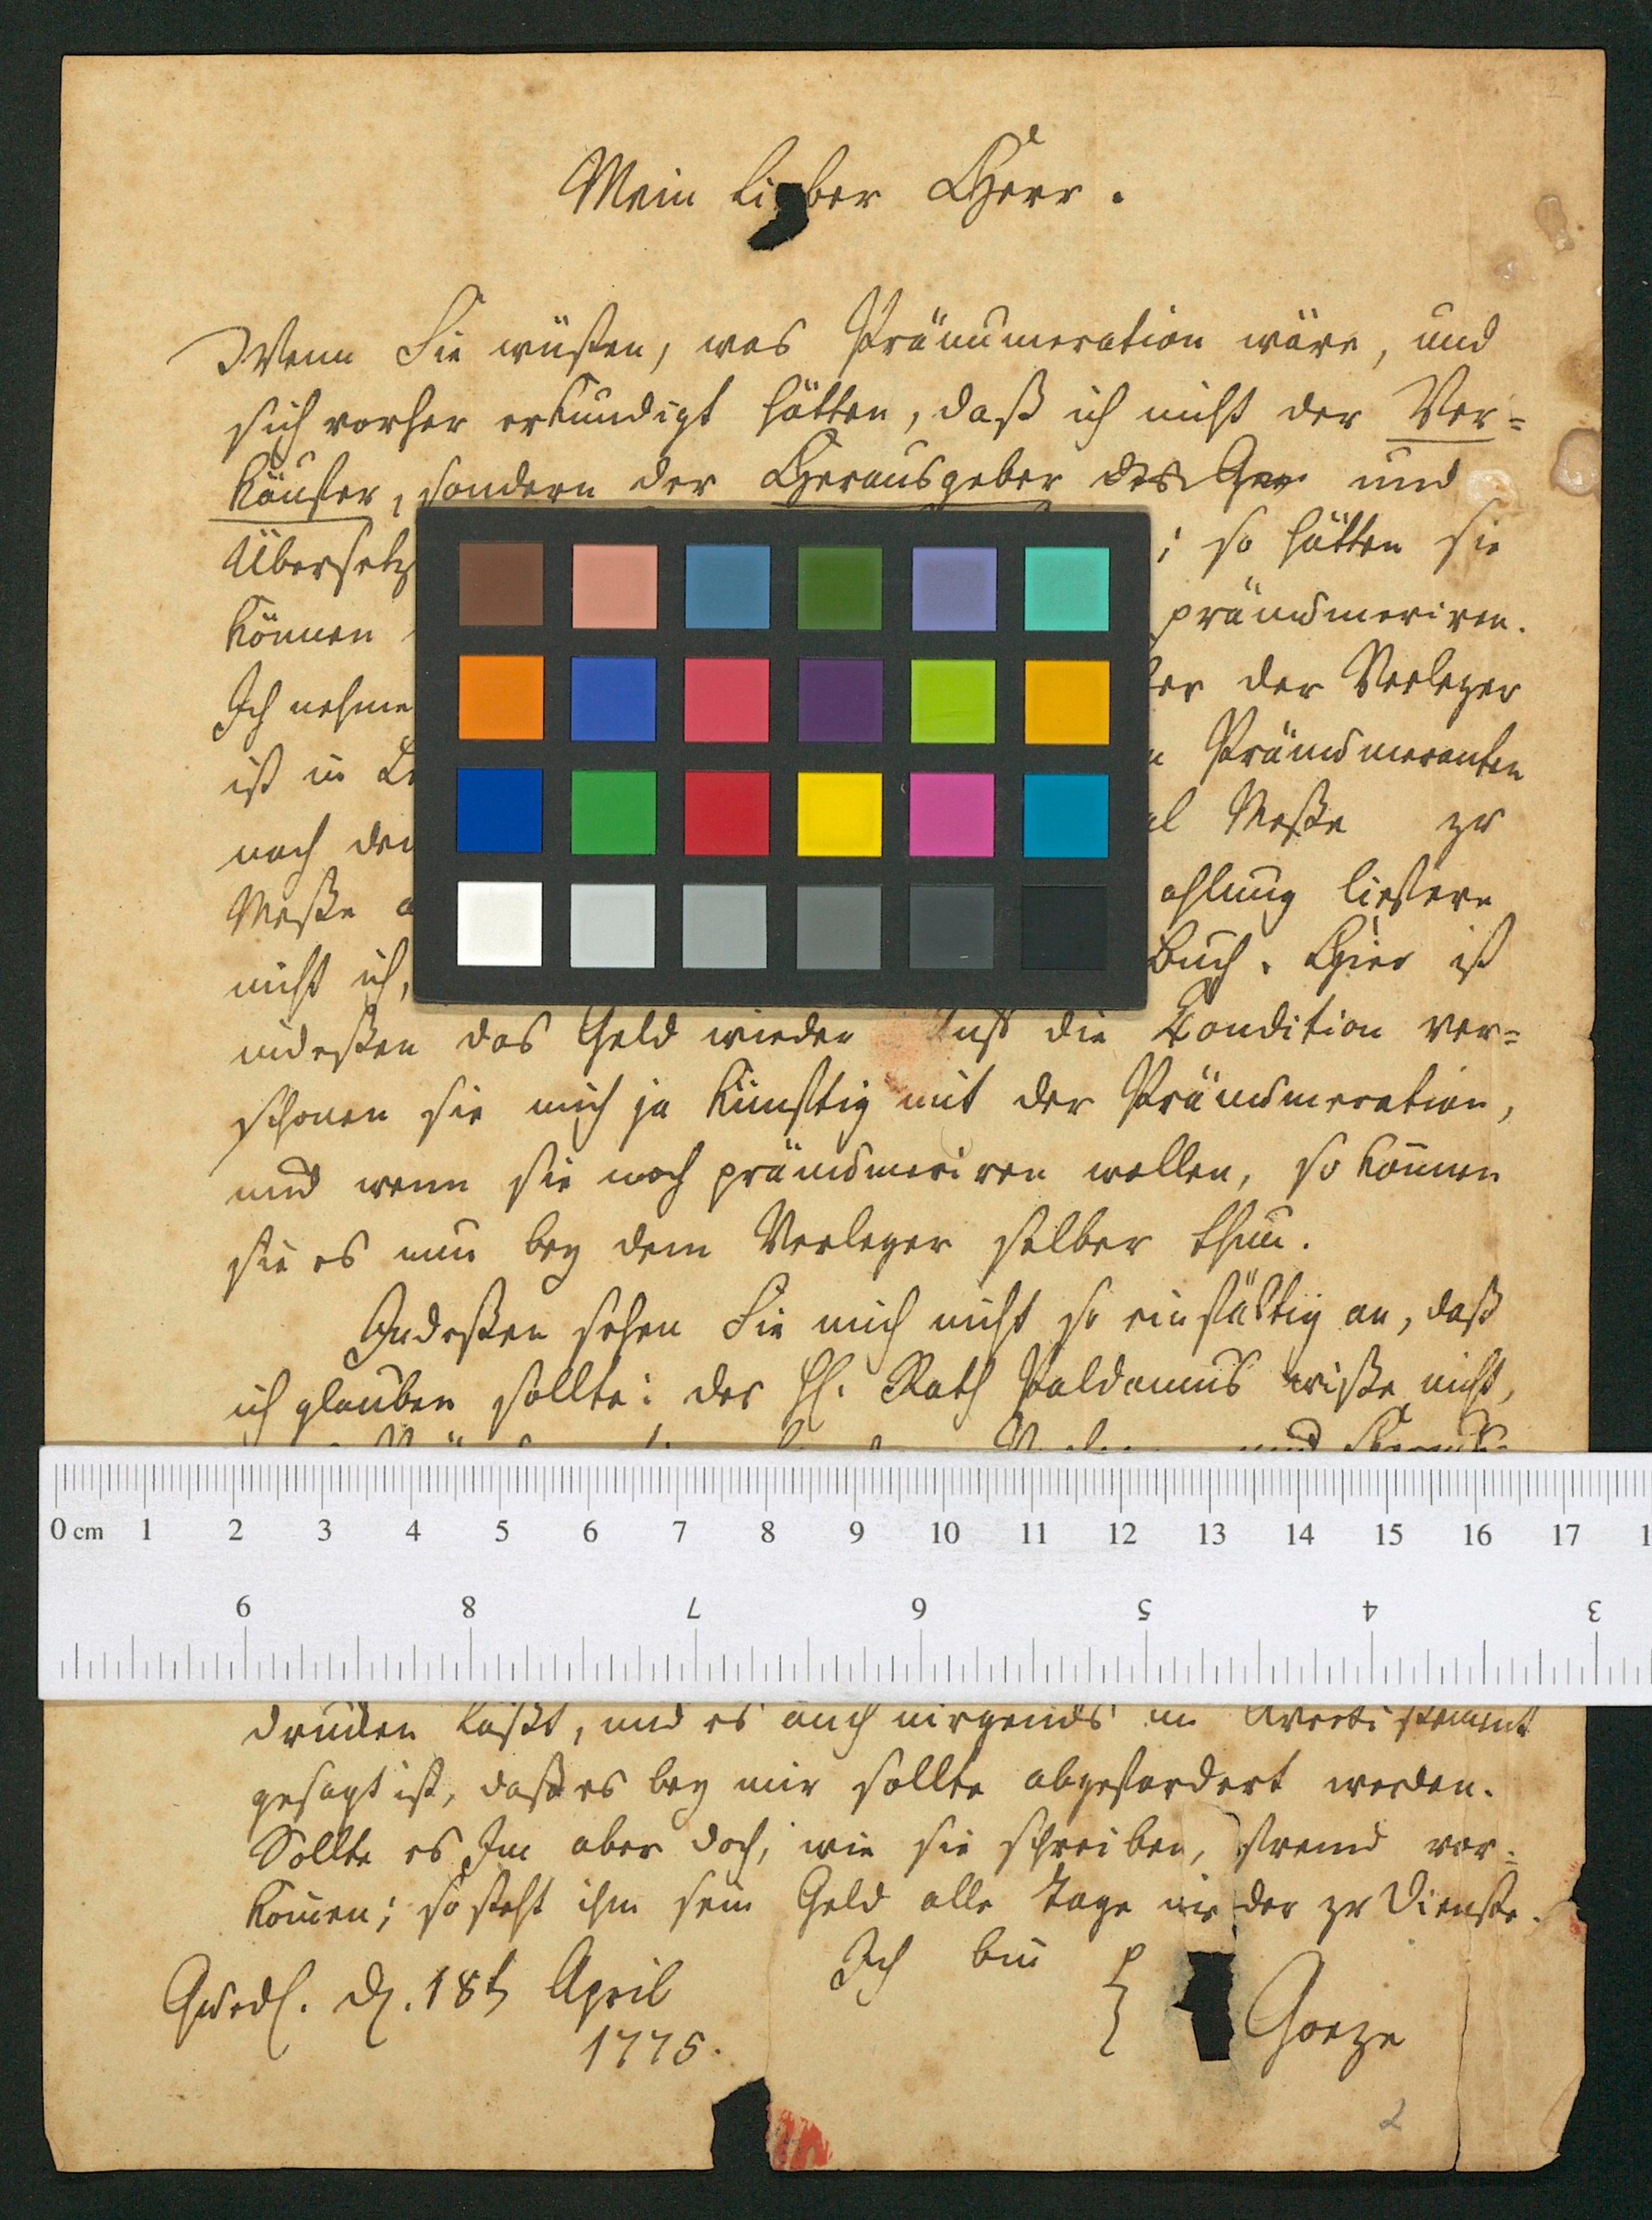 Mein lieber Herr.
Wenn Sie wüsten, was Pränumeration wäre, und
sich vorher erkundigt hätten, daß ich nicht der Ver=
käufer, sondern der Herausgeber des und
Übersetz ; so hätten sie
können pränumeriren.
Ich nehme der Verleger
ist in Pränumeranten
nach Meße zu
Meße ahlung liefere
nicht ich, Buch. Hier ist
indeßen das Geld wieder die Condition ver=
schonen sie mich ja künftig mit der Pränumeration,
und wenn sie noch pränumeriren wollen, so können
sie es nun bey dem Verleger selber thun.
Indeßen sehen Sie mich nicht so einfältig an, daß
ich glauben sollte: der H. Rath Paldamus wiße nicht,
0 cm 1 2 3 4 5 6 7 8 9 10 11 12 13 14 15 16 17 1
9 8 7 6 5 4 3
drucken läßt, und es auch nirgends im Avertissement
gesagt ist, daß es bey mir sollte abgefordert werden.
Sollte es Im aber doch, wie sie schreiben, fremd vor=
kom̄en; so steht ihm sein Geld alle Tage wieder zu Dienste.
Ich bin
Quedl. d. 18t April
1775.
Goeze
2